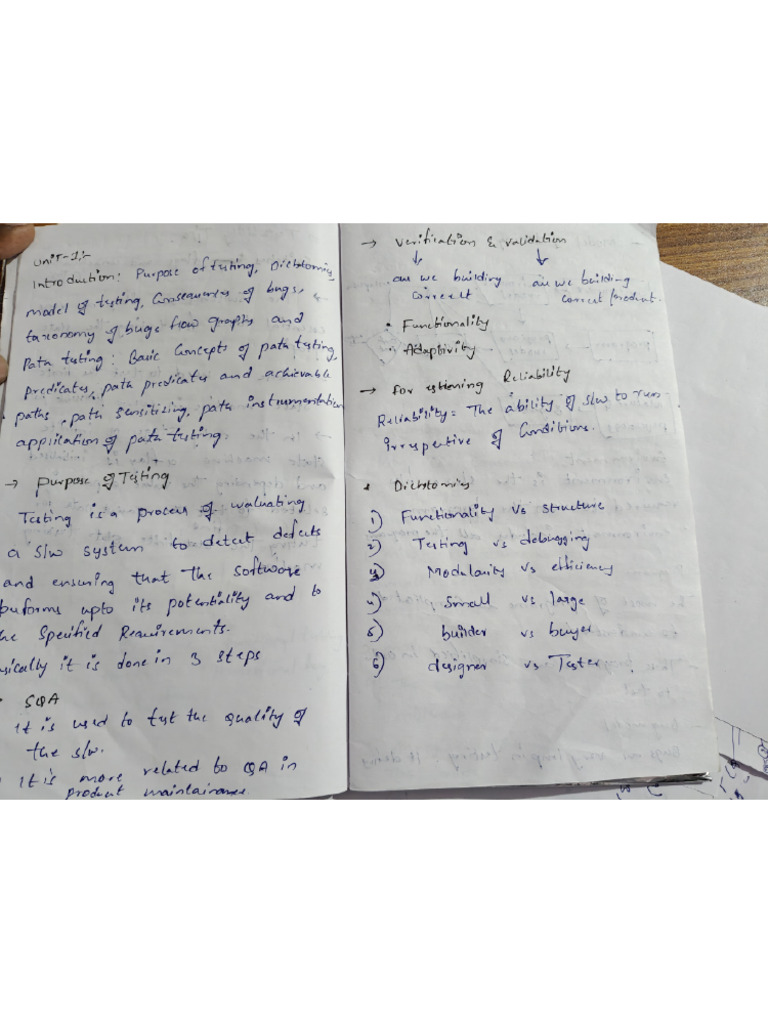 UNIT-1:-
Introduction: Purpose of testing, Dichotomies,
model of testing, Consequences of bugs,
taxonomy of bugs flow graphs and
Path testing: Basic Concepts of path testing,
predicates, path predicates and achievable
paths, path sensitizing, path instrumentation
application of path testing.
→ purpose of Testing
Testing is a process of evaluating
a S/w system to detect defects
and ensuring that The Software
performs upto its potentiality and to
the Specified Requirements.
it is done in 3 steps
SQA
It is used to test the quality of
the s/w.
It is more related to QA in
product maintainance.
→ Verification & validation
↓ ↓
are we building are we building
correct correct product.
• Functionality
• Adaptivity
→ For Reliability
Reliability: The ability of S/w to run
irrespective of Conditions.
• Dichotomies
1) Functionality vs structure
2) Testing vs debugging
3) Modularity vs efficiency
4) Small vs large
5) builder vs buyer
6) designer vs Tester